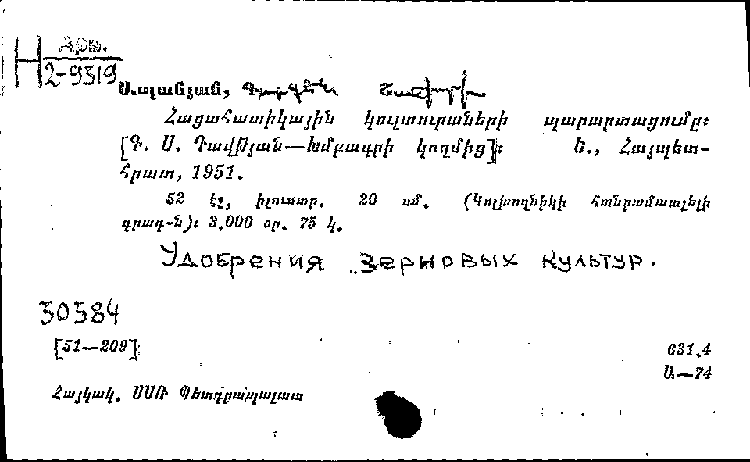 Н Арм.
2-9319
Ասլանյան, Գուրգեն
Հացահատիկային կուլտուրաների պարարտացումը:
[Գ. Ս. Դավթյան—խմբագրի կողմից]: Ե., Հայպետ-
հրատ, 1951.
52 էջ, իլուստր. 20 սմ. (Կոլխոզնիկի հանրամատչելի
գրադ-ն): 3,000 օր. 75 կ.
Удобрения зерновых культур.
30384
[51—209]:
631.4
Ա—74
Հայկակ. ՍՍՌ Պետգրապալատ